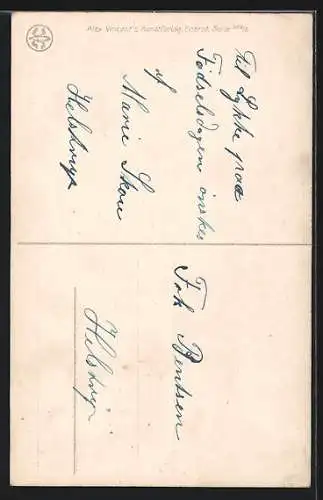 Alex Vincent's Kunstforlag, Eneret, Serie
Til Lykke paa
Fødselsdagen ønskes
af
Marie Skou
Helstrup
Frk Bentsen
Helstrup